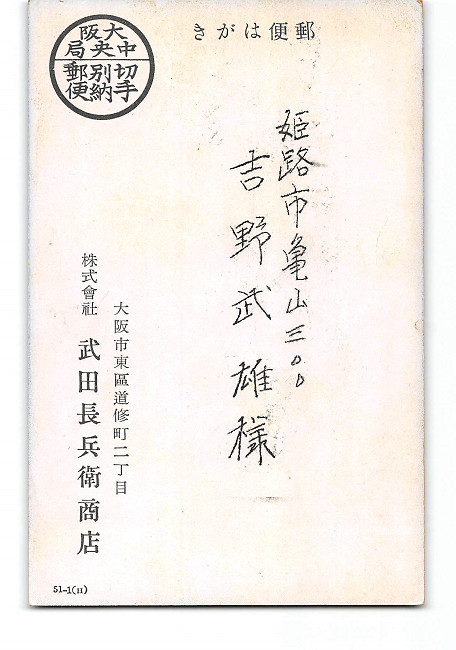 郵便はがき
大阪
中央局
切手
別納
郵便
姫路市亀山三〇〇
吉野武雄様
大阪市東區道修町二丁目
株式會社 武田長兵衛商店
51-1(H)